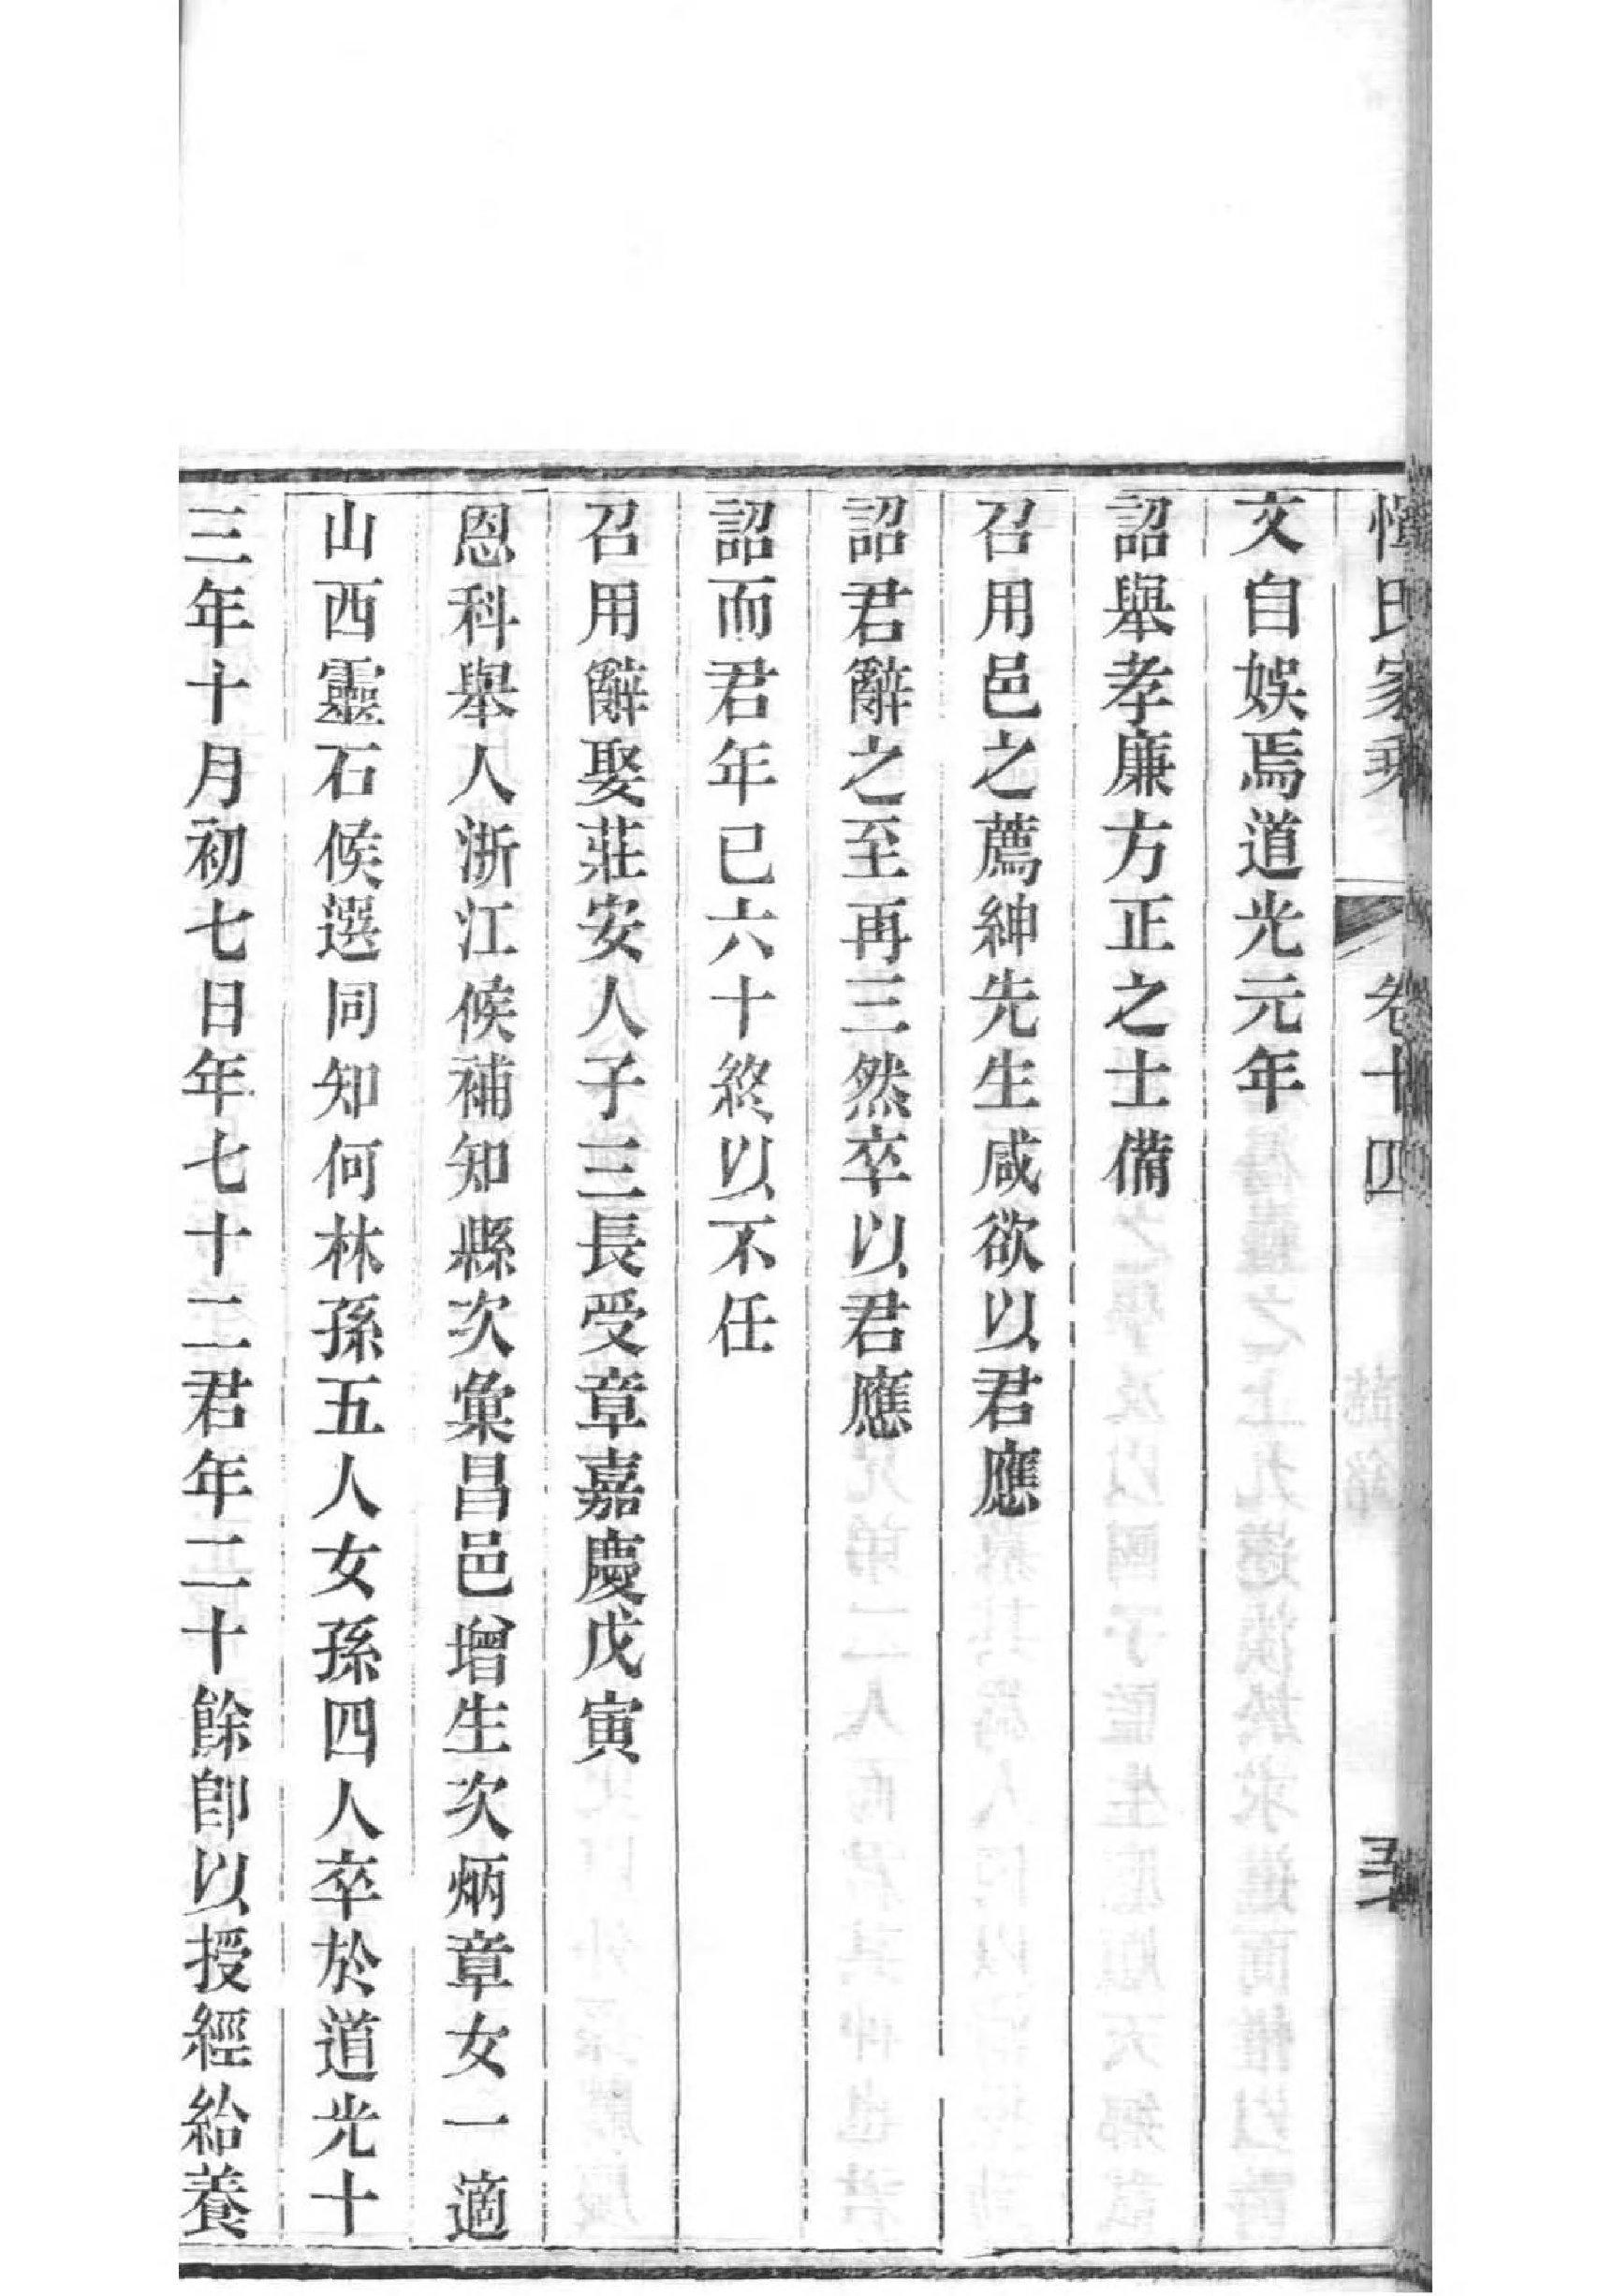 惲氏家乘 卷十四
文自娛焉道光元年
詔舉孝廉方正之士備
召用邑之薦紳先生咸欲以君應
詔君辭之至再三然卒以君應
詔而君年已六十終以不任
召用辭娶莊安人子三長受章嘉慶戊寅
恩科舉人浙江候補知縣次彙昌邑增生次炳章女一適
山西靈石候選同知何林孫五人女孫四人卒於道光十
三年十月初七日年七十二君年二十餘卽以授經給養